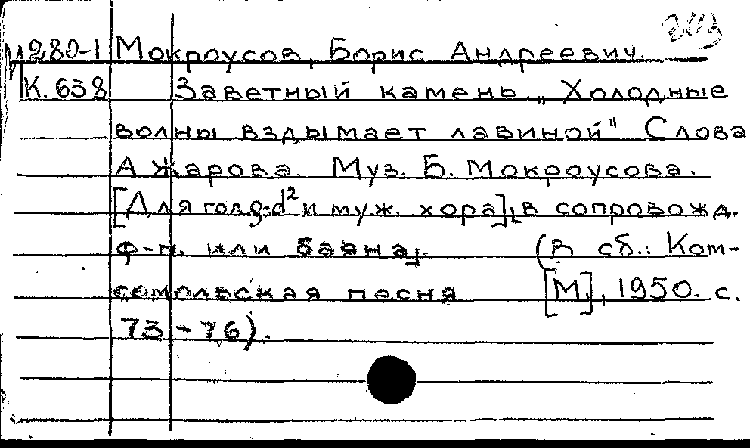 М280-1 Мокроусов, Борис Андреевич.
К. 638 Заветный камень „Холодные
волны вздымает лавиной" Слова
А Жарова. Муз. Б. Мокроусова.
[Для гол. d² и муж. хора], в сопровожд.
ф-п. или баяна. (В сб.: Ком-
сомольская песня [М], 1950. с.
73-76).